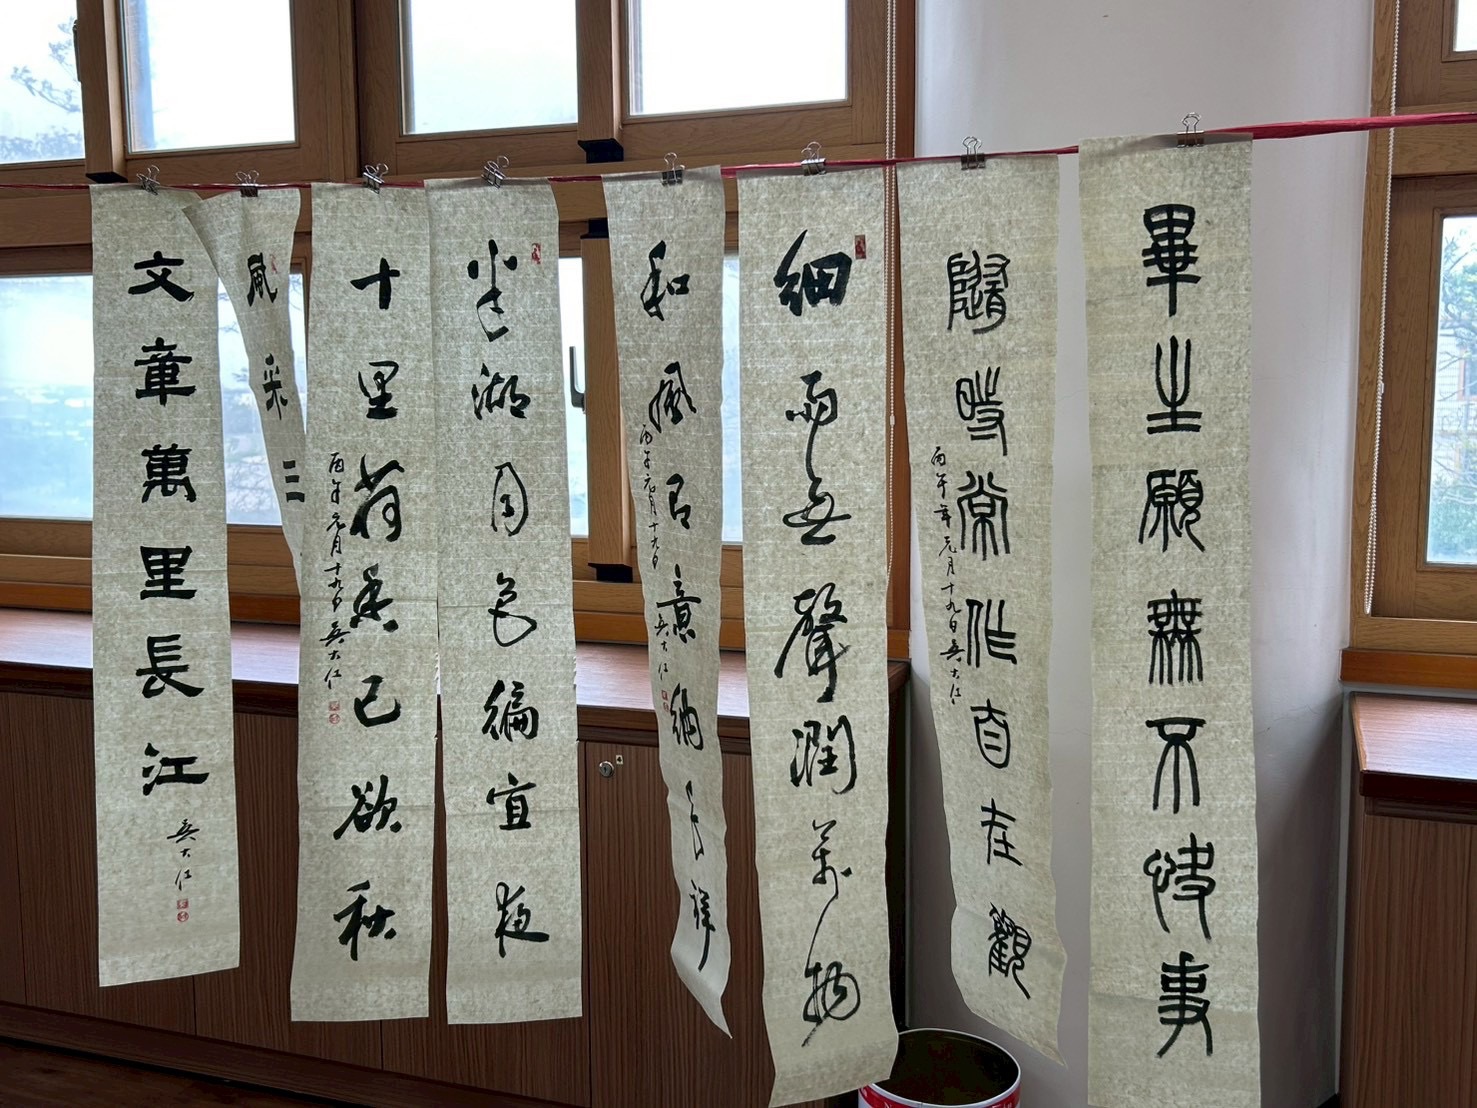 畢生願無不快事
隨時常作自在觀
丙午年元月十九日吳大仁
細雨無聲潤萬物
和風有意納祥
丙午元月十九日吳大仁
半湖月色偏宜夜
十里荷香已欲秋
丙午元月十九日吳大仁
風采三
文章萬里長江
吳大仁